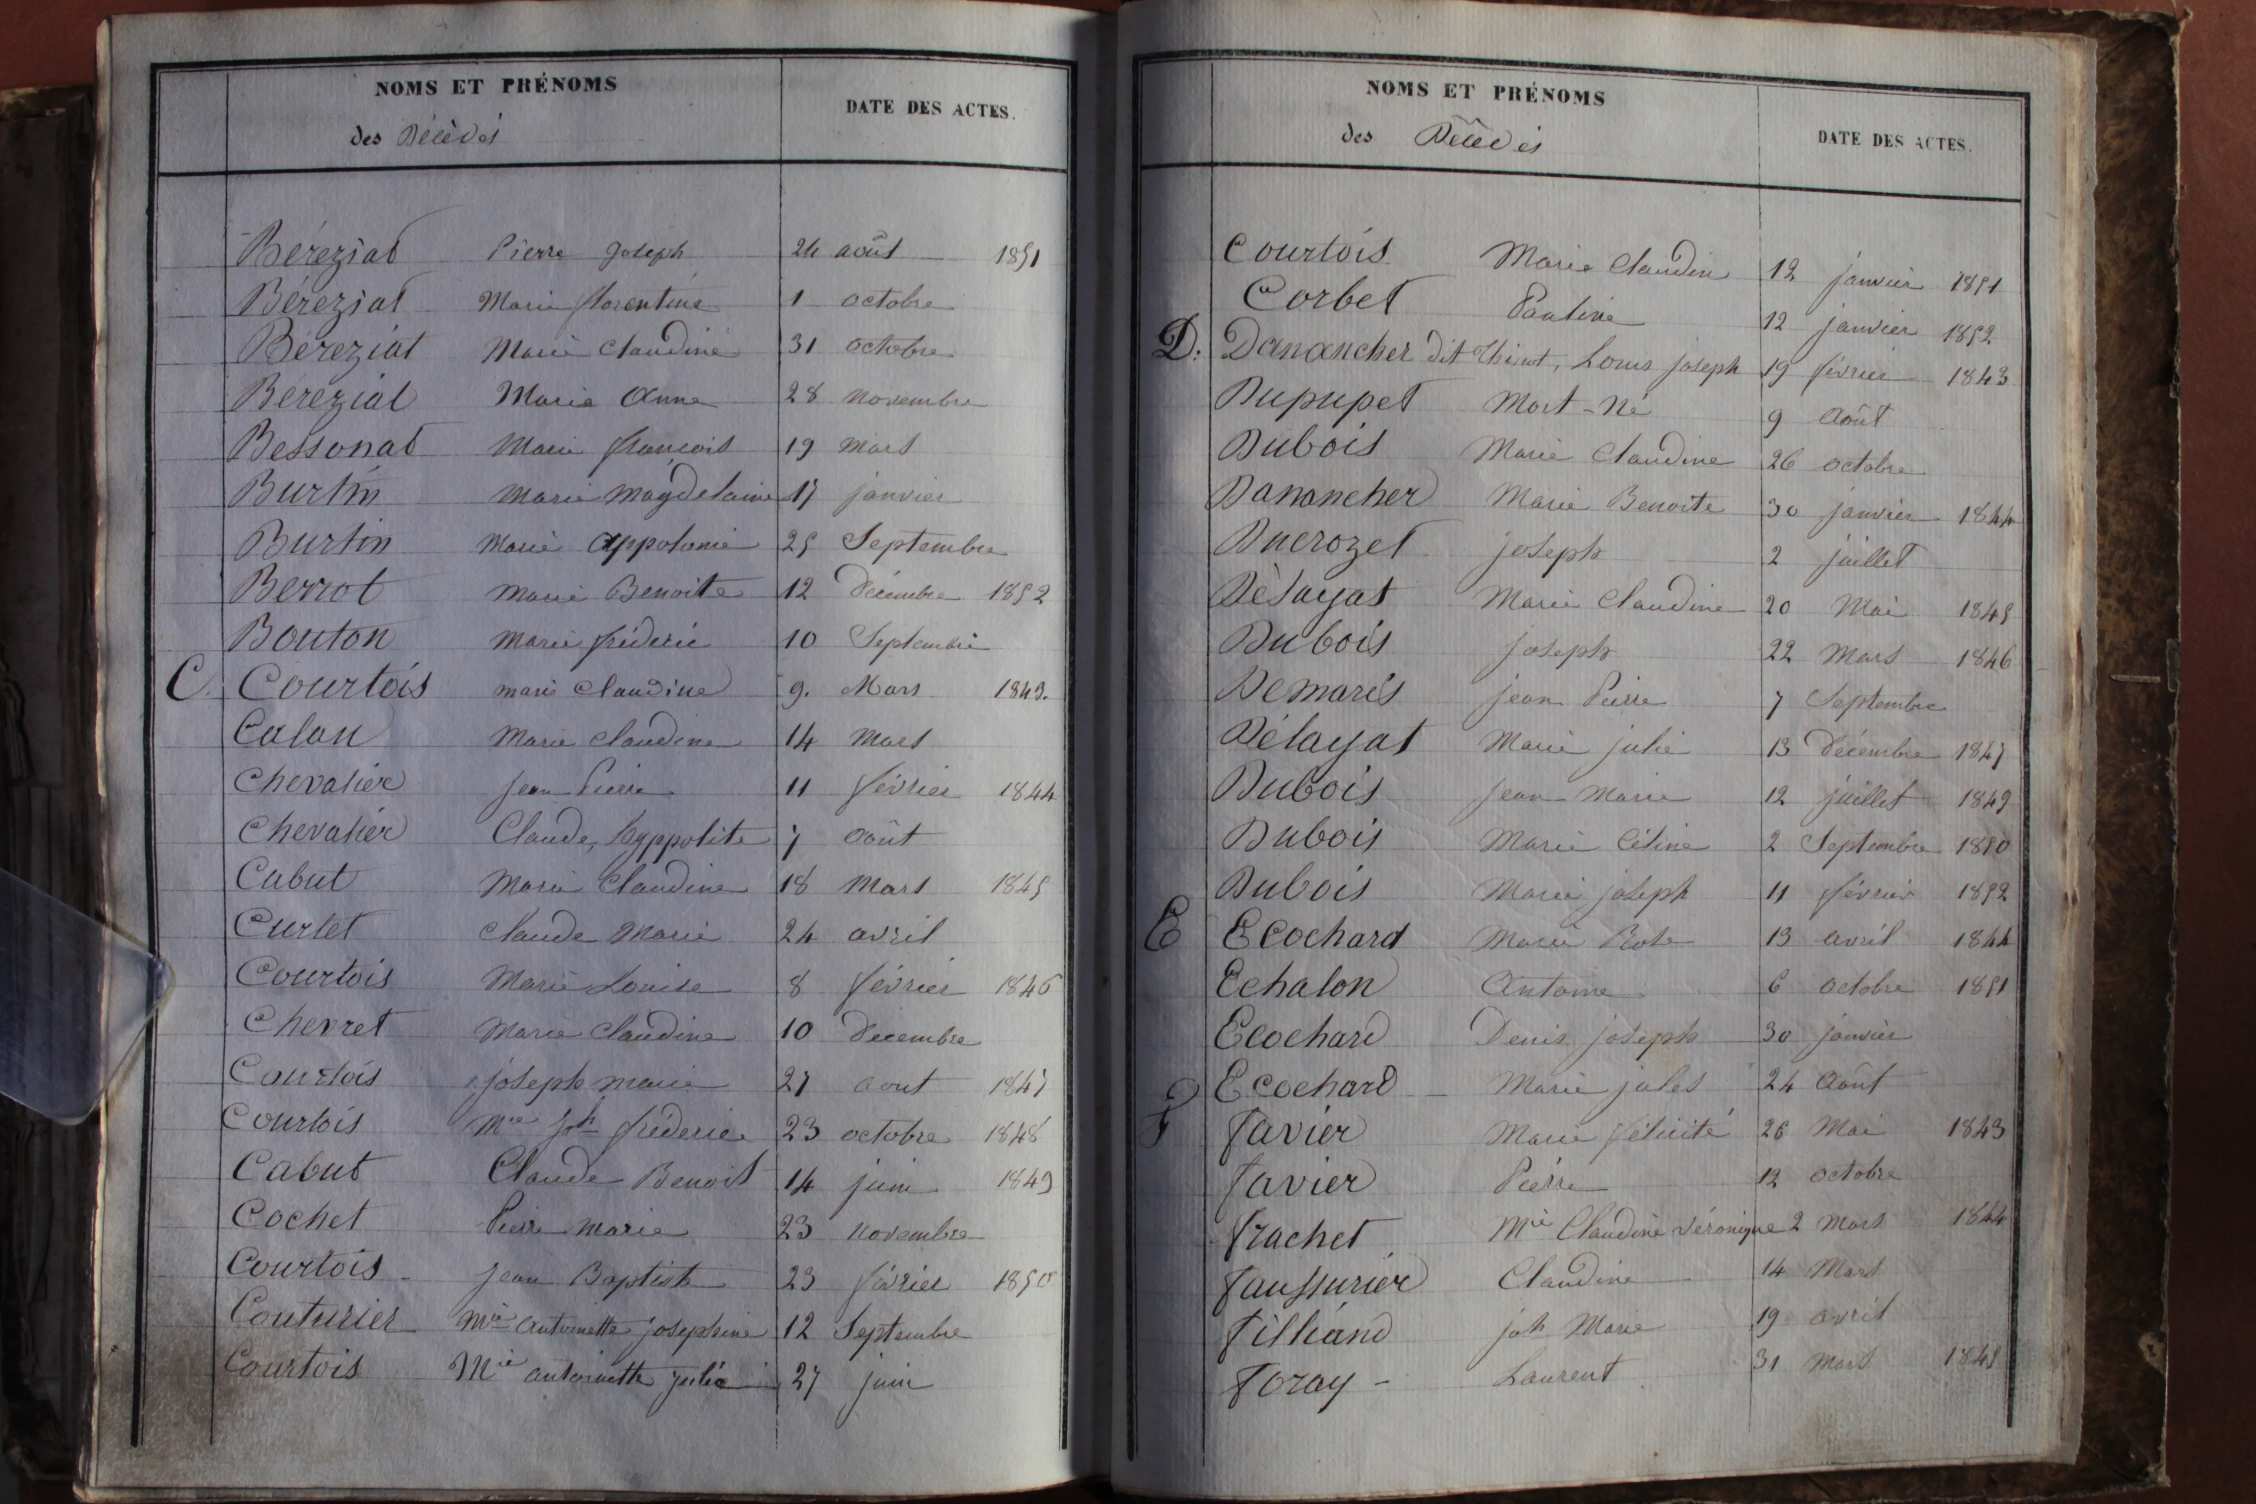 NOMS ET PRÉNOMS
des Décédés
DATE DES ACTES.
Béreziat Pierre Joseph 24 août 1851
Béreziat Marie florentine 1 octobre
Béreziat Marie Claudine 31 octobre
Béreziat Marie Anne 28 novembre
Bessonat Marie françois 19 mars
Burtin Marie Magdelaine 17 janvier
Burtin Marie Appolonie 25 Septembre
Berrot Marie Benoite 12 Décembre 1852
Bouton Marie fréderic 10 Septembre
C. Courtois marie Claudine 9. Mars 1843.
Calan Marie Claudine 14 Mars
Chevalier Jean Pierre 11 février 1844
Chevalier Claude, hyppolite 7 août
Cabut Marie Claudine 18 Mars 1845
Curlet Claude Marie 24 avril
Courtois Marie Louise 8 février 1846
Chevret Marie Claudine 10 Decembre
Courtois joseph marie 27 aout 1847
Courtois Mie Jph fréderic 23 octobre 1848
Cabut Claude Benoit 14 juin 1849
Cochet Pierre Marie 23 novembre
Courtois Jean Baptiste 23 février 1850
Couturier Mie antoinette josephine 12 Septembre
Courtois Mie antoinette julie 27 juin
NOMS ET PRÉNOMS
des Décédés
DATE DES ACTES.
Courtois Marie Claudine 12 janvier 1851
Corbet Pauline 12 janvier 1852
D. Danancher dit Louis joseph 19 février 1843
Dupupet Mort-Né 9 août
Dubois Marie Claudine 26 octobre
Danancher Marie Benoite 30 janvier 1844
Ducrozet joseph 2 juillet
Délayat Marie Claudine 20 Mai 1845
Dubois joseph 22 Mars 1846
Demaris jean Pierre 7 Septembre
Délayat Marie julie 13 Décembre 1847
Dubois Jean Marie 12 juillet 1849
Dubois Marie Céline 2 Septembre 1850
Dubois Marie joseph 11 février 1852
E Ecochard Marie Rose 13 avril 1844
Echalon Antoine 6 octobre 1851
Ecochard Denis joseph 30 janvier
Ecochard Marie jules 24 Août
F Favier Marie félicité 26 Mai 1843
Favier Pierre 12 octobre
frachet Mie Claudine Véronique 2 Mars 1844
Faussurier Claudine 14 Mars
Filliand jph Marie 19 avril
Foray Laurent 31 Mars 1845